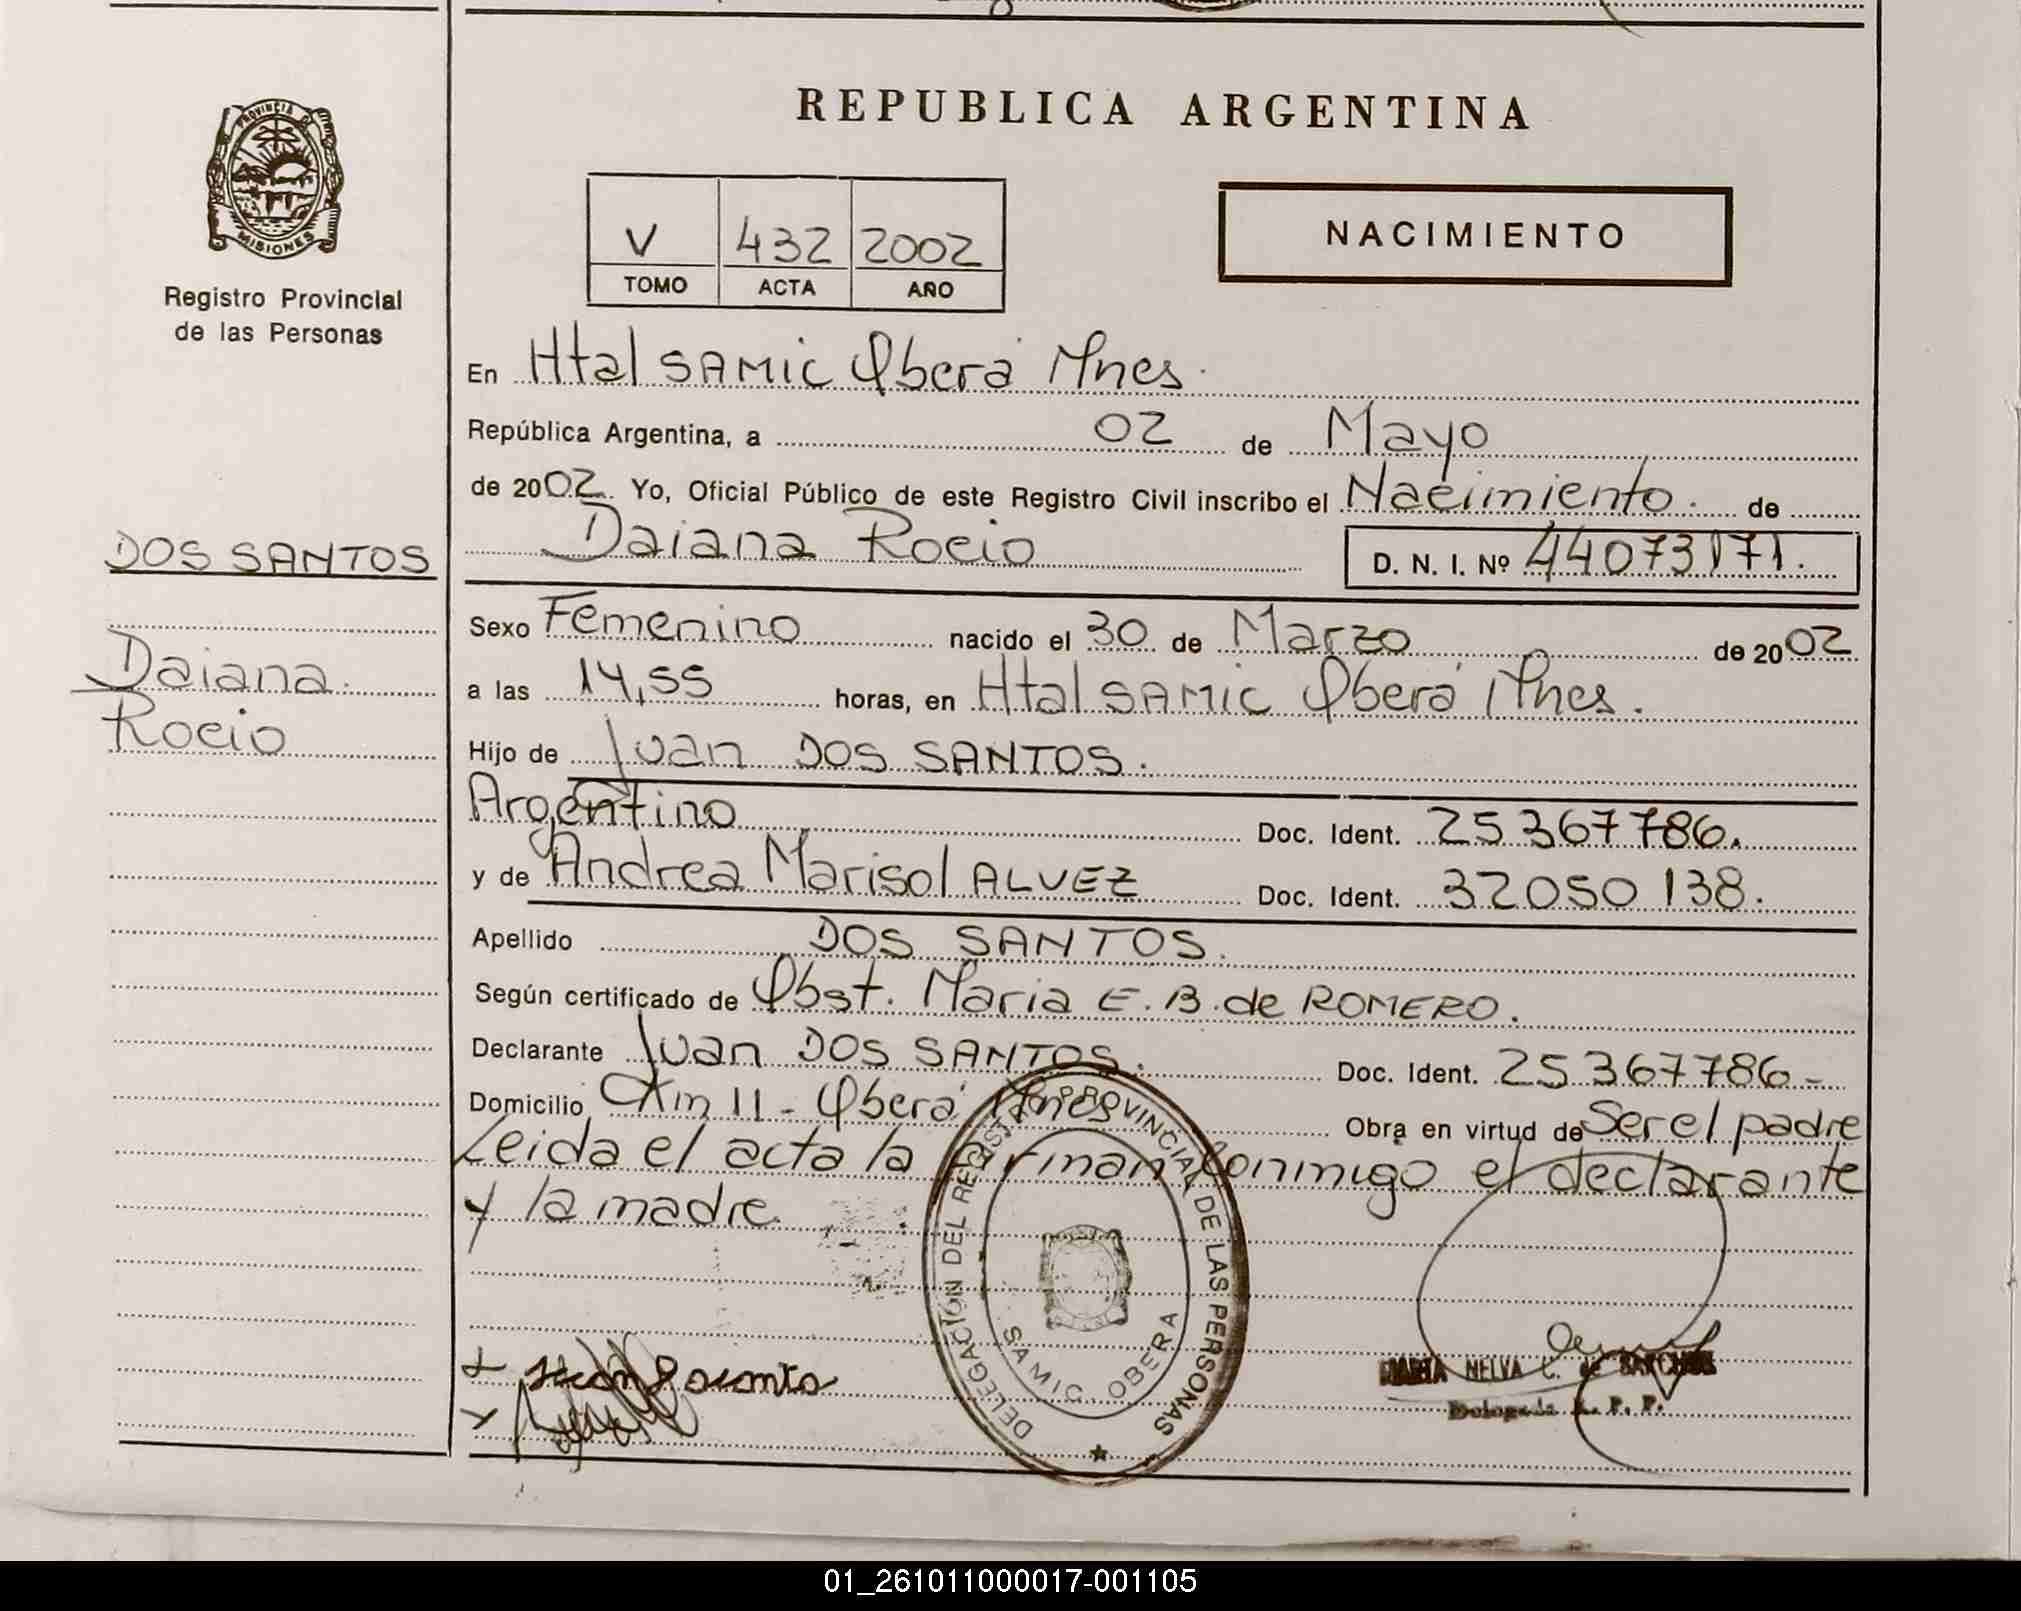 REPUBLICA ARGENTINA
PROVINCIA D
MISIONES
Registro Provincial
de las Personas
V 432 2002
TOMO ACTA AÑO
NACIMIENTO
En Htal SAMIC Oberá Mnes.
República Argentina, a 02 de Mayo
de 2002. Yo, Oficial Público de este Registro Civil inscribo el Nacimiento. de
Daiana Rocio D. N. I. Nº 44073171.
DOS SANTOS
Daiana
Rocio
Sexo Femenino nacido el 30 de Marzo de 2002
a las 14,55 horas, en Htal SAMIC Oberá Mnes.
Hijo de Juan DOS SANTOS.
Argentino Doc. Ident. 25367786.
y de Andrea Marisol ALVEZ Doc. Ident. 32050138.
Apellido DOS SANTOS.
Según certificado de Obst. Maria E. B. de ROMERO.
Declarante Juan DOS SANTOS. Doc. Ident. 25367786-
Domicilio Km 11 - Oberá Mnes Obra en virtud de Ser el padre
Leida el acta la firman conmigo el declarante
y la madre
DELEGACIÓN DEL REGISTRO PROVINCIAL DE LAS PERSONAS
SAMIC OBERA
MARIA NELVA C. de
Delegada R. P. P.
01_261011000017-001105